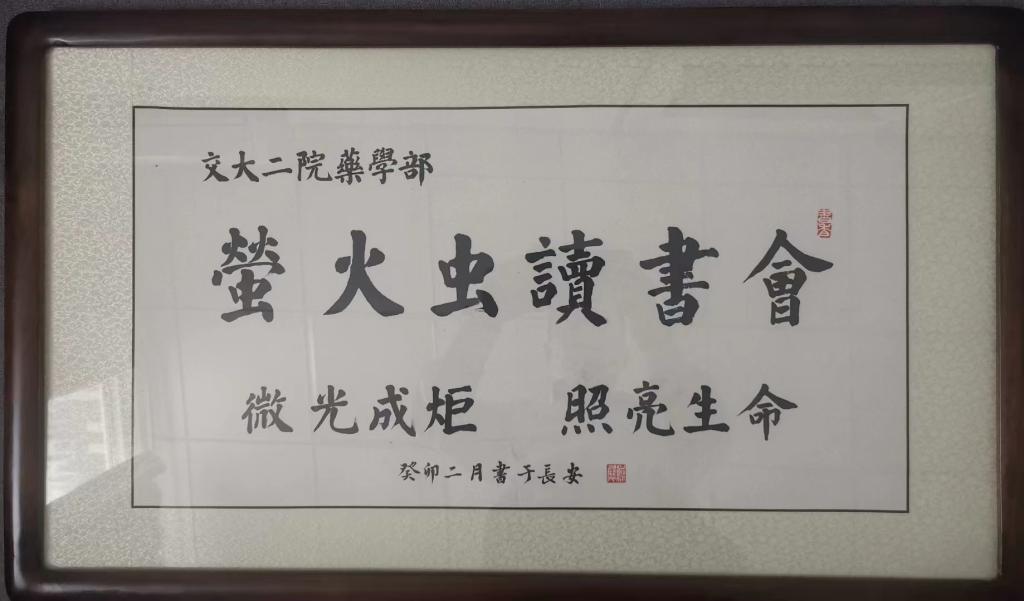 交大二院藥學部
螢火虫讀書會
微光成炬 照亮生命
癸卯二月書于長安